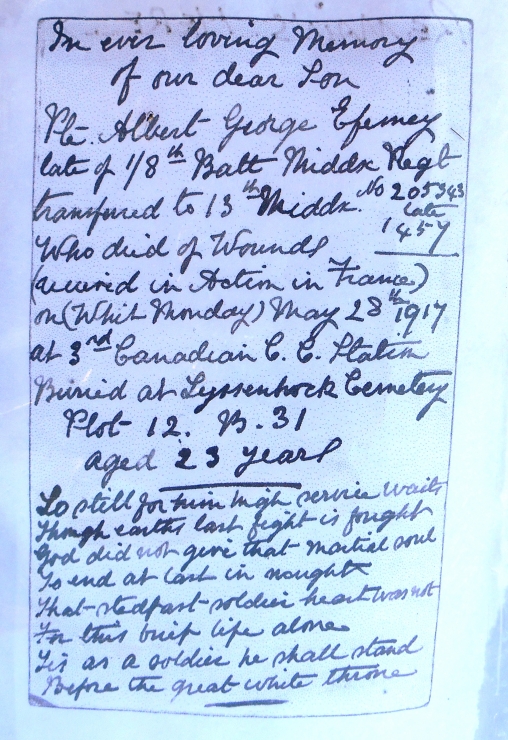 In ever loving Memory
of our dear Son
Pte. Albert George Efemey
late of 1/8th Batt Middx Regt
transfured to 13th Middx. No 205343
late
1457
Who died of Wounds
(received in Action in France)
on (Whit Monday) May 28th 1917
at 3rd Canadian C. C. Station
Buried at Lyssenhock Cemetery
Plot 12. B. 31
aged 23 years
Lo still for him high service waits
Though earths last fight is fought
God did not give that martial soul
To end at last in nought
That stedfast soldier heart was not
For this brief life alone
Tis as a soldier he shall stand
Before the great white throne